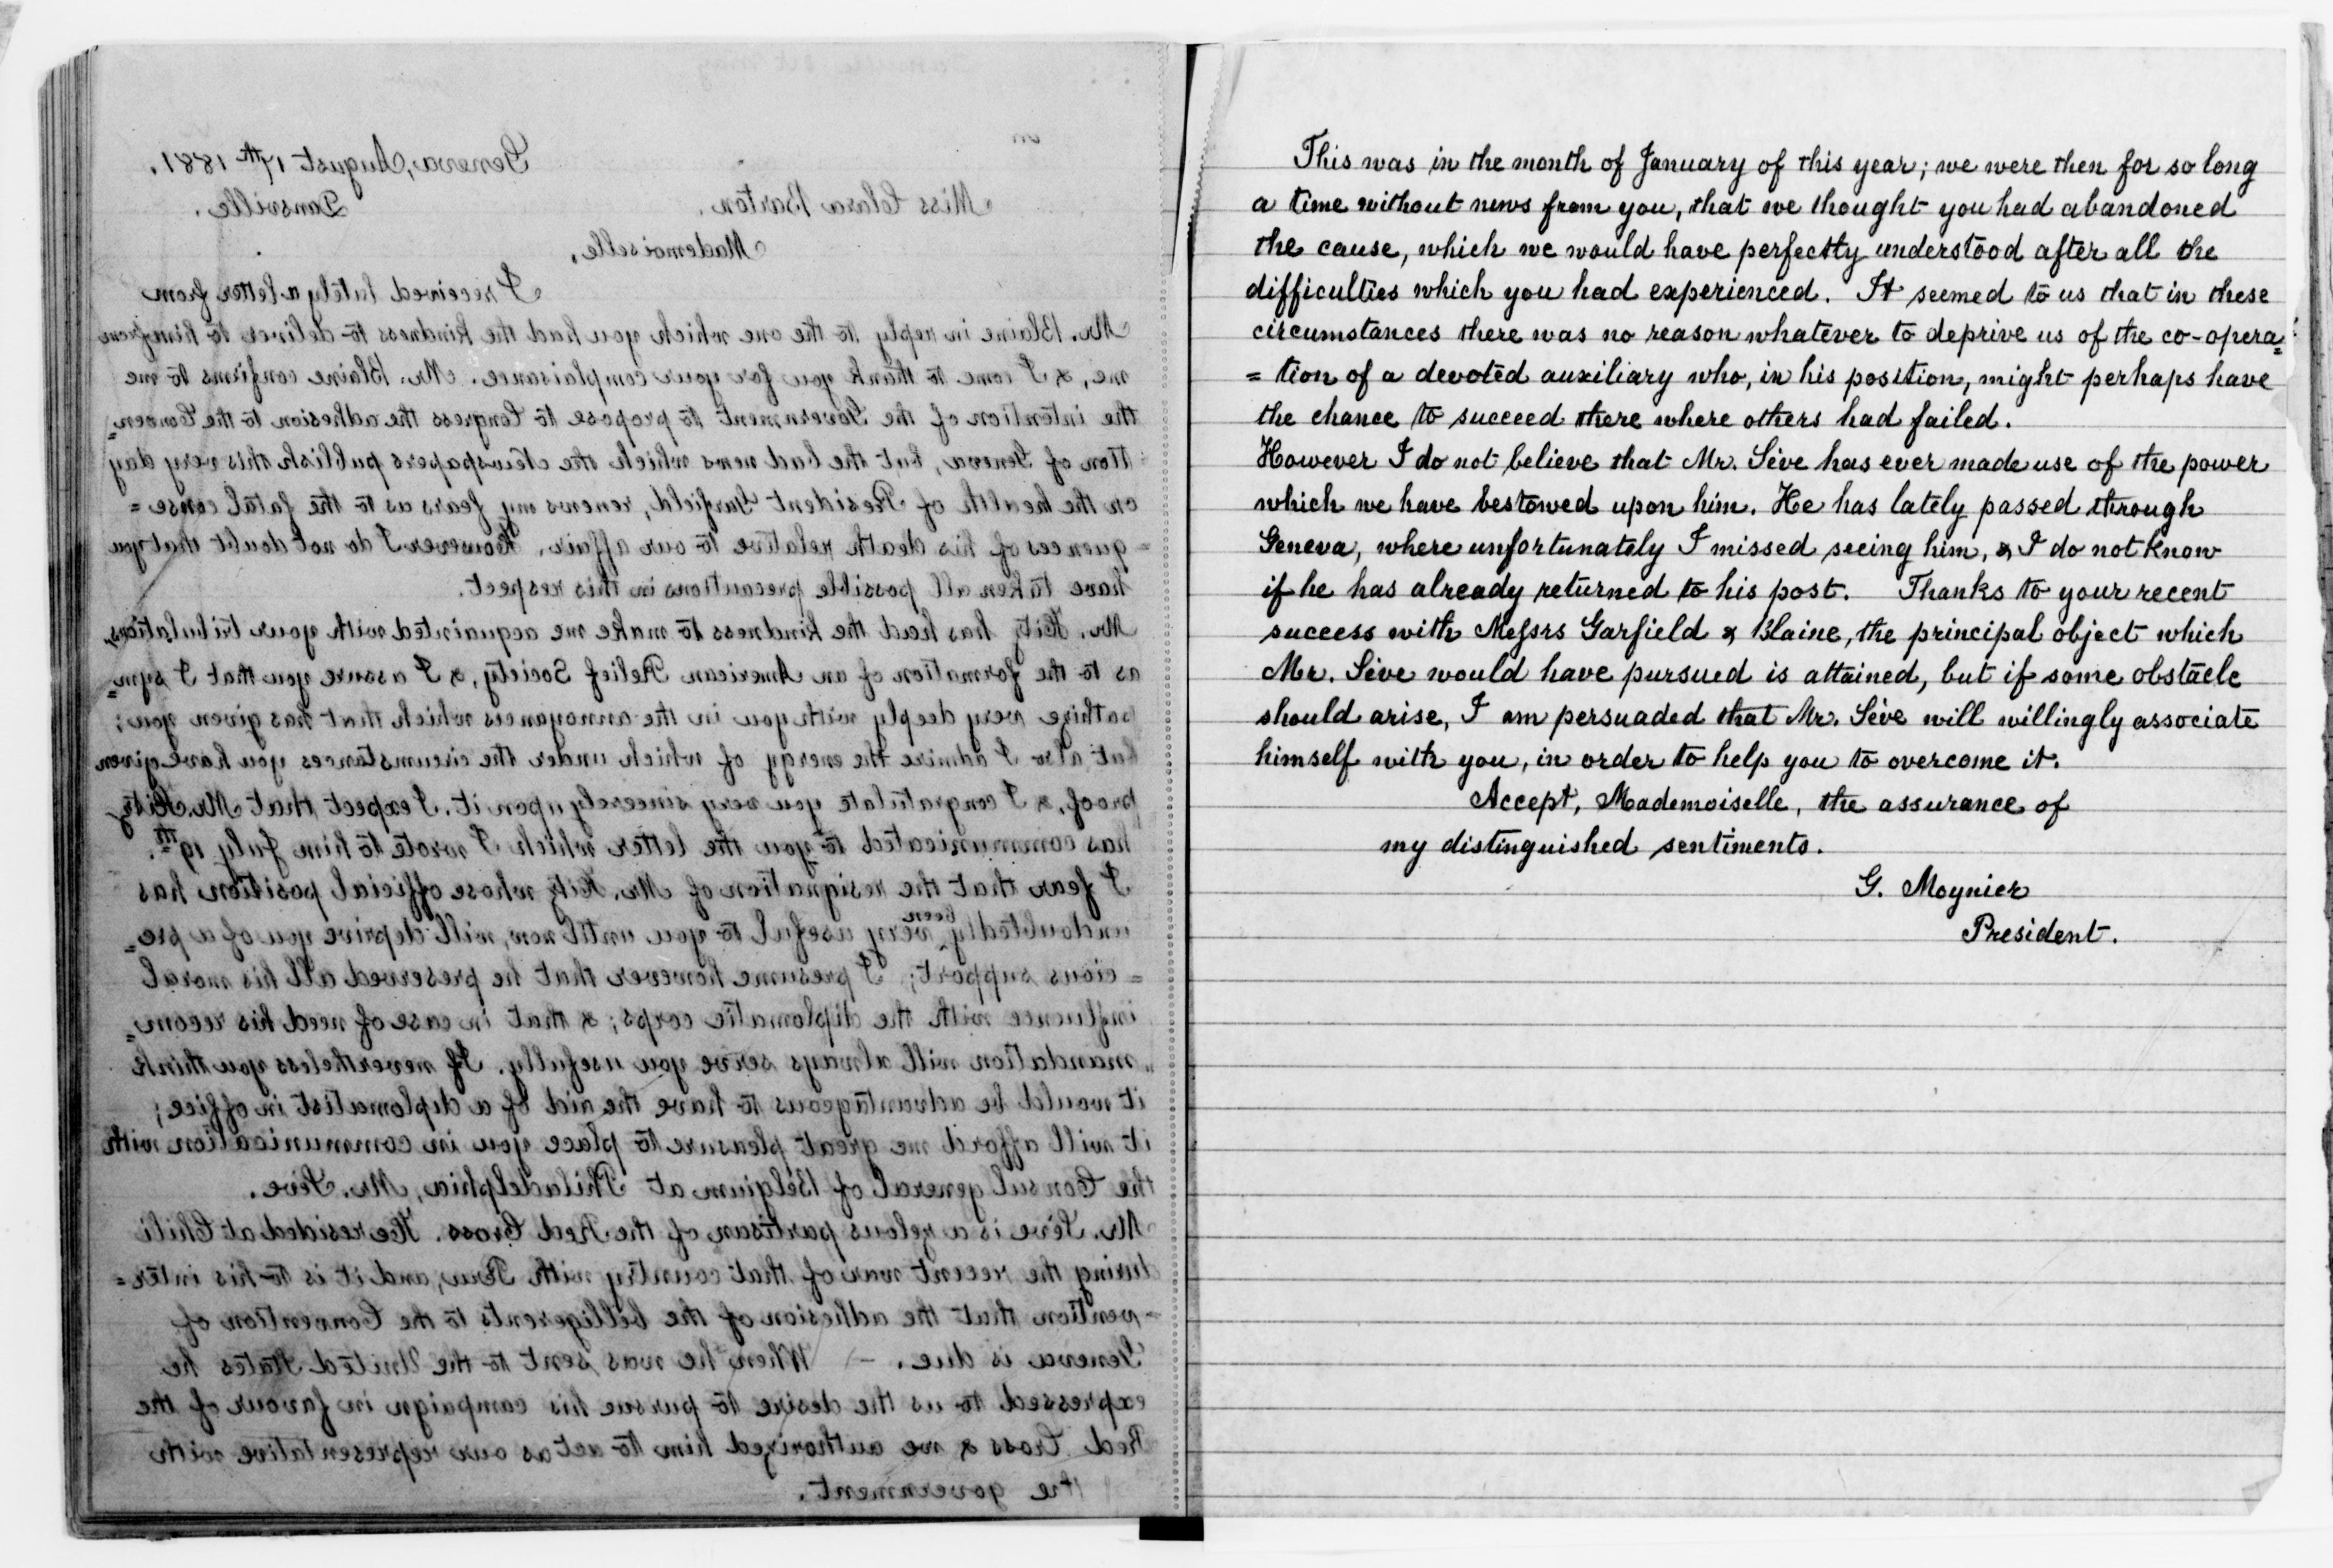 Geneva, August 17th 1881.
Miss Clara Barton. Dansville.
Mademoiselle,
I received lately a letter from
Mr. Blaine in reply to the one which you had the kindness to deliver to him from
me, & I come to thank you for your complaisance. Mr. Blaine confirms to me
the intention of the Government to propose to Congress the adhesion to the Conven=
tion of Geneva, but the bad news which the Newspapers publish this very day
on the health of President Garfield, renews my fears as to the fatal conse=
=quences of his death relative to our affair. However I do not doubt that you
have taken all possible precautions in this respect.
Mr. Hitz has had the kindness to make me acquainted with your tribulations
as to the formation of an American Relief Society, & I assure you that I sym=
pathize very deeply with you in the annoyances which that has given you;
but also I admire the energy of which under the circumstances you have given
proof, & I congratulate you very sincerely upon it. I expect that Mr. Hitz
has communicated to you the letter which I wrote to him July 19th.
I fear that the resignation of Mr. Hitz whose official position has
undoubtedly been very useful to you until now, will deprive you of a pre=
=cious support; I presume however that he preserved all his moral
influence with the diplomatic corps; & that in case of need his recom=
=mandation will always serve you usefully. If nevertheless you think
it would be advantageous to have the aid of a diplomatist in office;
it will afford me great pleasure to place you in communication with
the Consul general of Belgium at Philadelphia, Mr. Sève.
Mr. Sève is a zelous partisan of the Red Cross. He resided at Chili
during the recent war of that country with Peru, and it is to his inter=
-vention that the adhesion of the billigerents to the Convention of
Geneva is due. — When he was sent to the United States he
expressed to us the desire to pursue his campaign in favour of the
Red Cross & we authorized him to act as our representative with
the government.
This was in the month of January of this year; we were then for so long
a time without news from you, that we thought you had abandoned
the cause, which we would have perfectly understood after all the
difficulties which you had experienced. It seemed to us that in these
circumstances there was no reason whatever to deprive us of the co-opera=
= tion of a devoted auxiliary who, in his position, might perhaps have
the chance to succeed there where others had failed.
However I do not believe that Mr. Sève has ever made use of the power
which we have bestowed upon him. He has lately passed through
Geneva, where unfortunately I missed seeing him, & I do not know
if he has already returned to his post. Thanks to your recent
success with Messrs Garfield & Blaine, the principal object which
Mr. Sève would have pursued is attained, but if some obstacle
should arise, I am persuaded that Mr. Sève will willingly associate
himself with you, in order to help you to overcome it.
Accept, Mademoiselle, the assurance of
my distinguished sentiments.
G. Moynier
President.